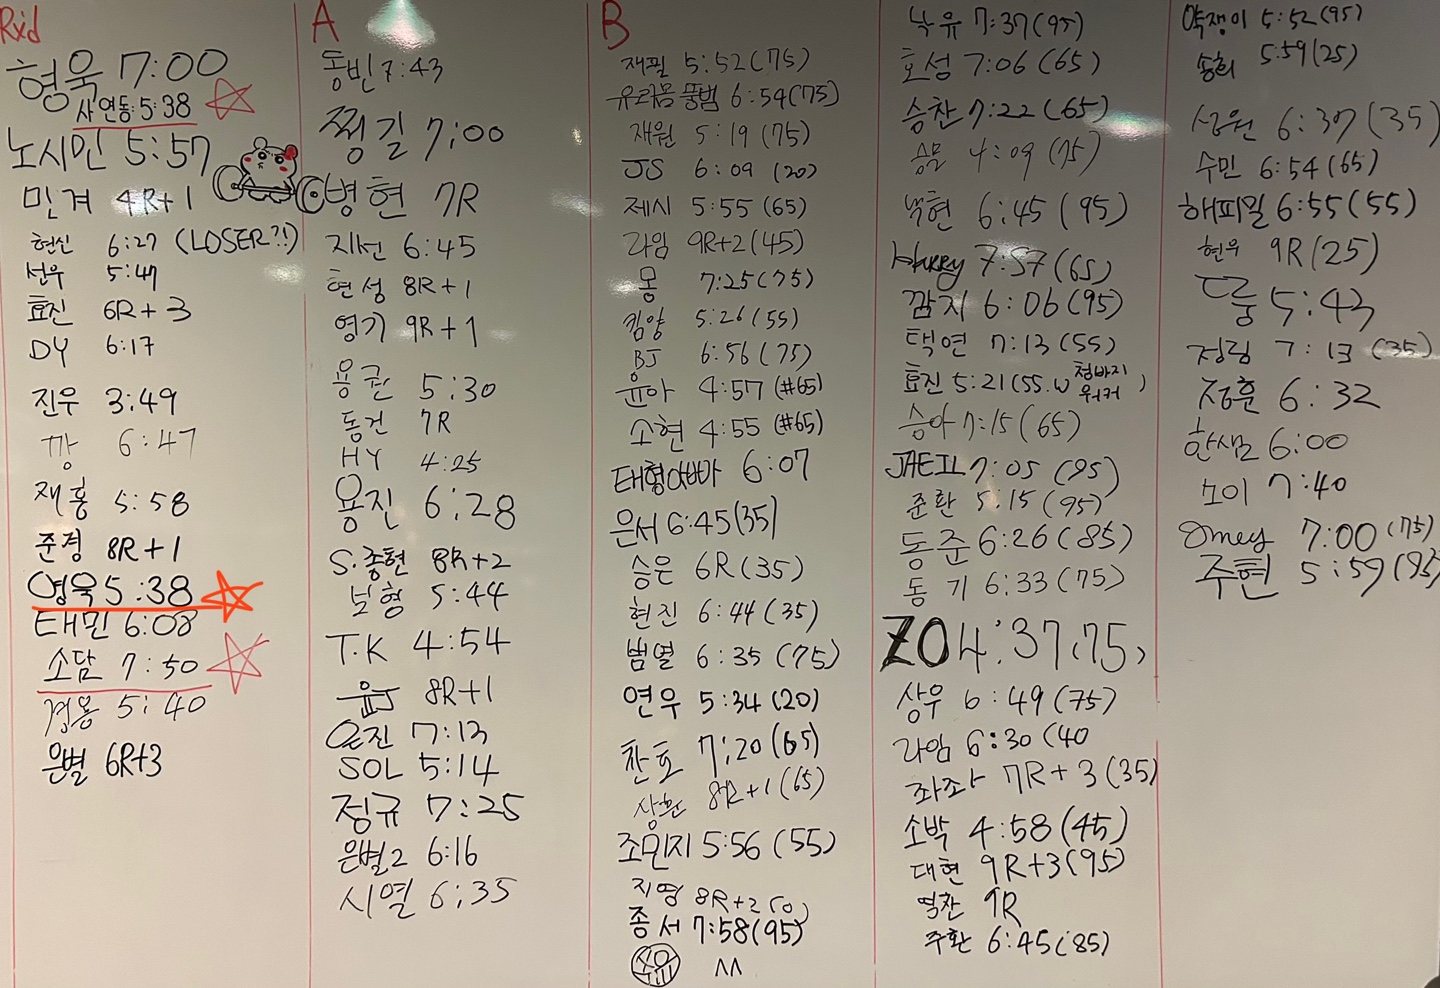 Rxd
형욱 7:00
사연동:5:38
노시민 5:57
민겨 4R+1
현신 6:27 (LOSER?!)
선우 5:47
효진 6R+3
DY 6:17
진우 3:49
깡 6:47
재홍 5:58
준경 8R+1
영욱 5:38
태민 6:08
소담 7:50
경용 5:40
은별 6R+3
A
동빈 7:43
찡길 7:00
병현 7R
지선 6:45
현성 8R+1
영기 9R+1
용권 5:30
동건 7R
HY 4:25
용진 6:28
S.종현 8R+2
보형 5:44
T.K 4:54
윤J 8R+1
은진 7:13
SOL 5:14
정규 7:25
은별2 6:16
시열 6:35
B
재필 5:52(75)
풍범 6:54(75)
재원 5:19(75)
JS 6:09 (20)
제시 5:55 (65)
라임 9R+2(45)
몽 7:25(75)
킴양 5:26(55)
BJ 6:56(75)
윤아 4:57(#65)
소현 4:55(#65)
태형아빠 6:07
은서 6:45(35)
승은 6R(35)
현진 6:44(35)
범열 6:35(75)
연우 5:34(20)
찬호 7:20(65)
상환 8R+1(65)
조민지 5:56(55)
지영 8R+2
종서 7:58(95)
^^
낙유 7:37(95)
호성 7:06(65)
승찬 7:22(65)
승문 4:09(75)
낙현 6:45(95)
Harry 7:57(65)
깜지 6:06(95)
택연 7:13(55)
효진 5:21(55.W 청바지 워커)
승아 7:15(65)
JAEIL 7:05(95)
준환 5:15(95)
동준 6:26(85)
동기 6:33(75)
ZO 4:37(75)
상우 6:49(75)
라임 6:30(40
좌좌 7R+3(35)
소박 4:58(45)
대현 9R+3(95)
역찬 9R
주환 6:45(85)
약쟁이 5:52(95)
송희 5:59(25)
성원 6:37(35)
수민 6:54(65)
해피밀 6:55(55)
현우 9R(25)
둥 5:43
정림 7:13(35)
정훈 6:32
한샘 6:00
노이 7:40
Omey 7:00(75)
주현 5:59(95)